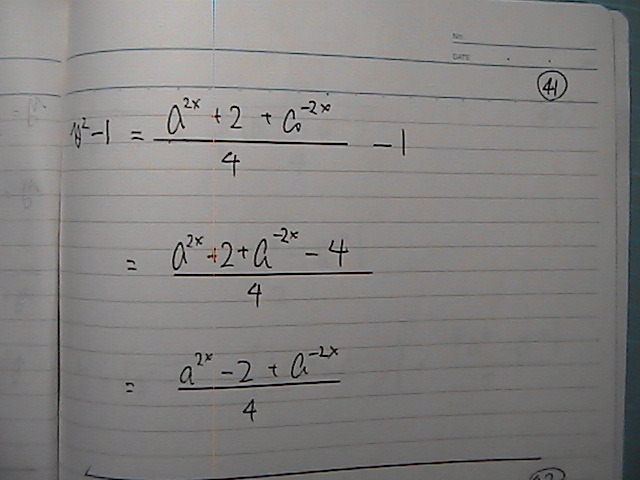 No.
DATE . .
41
y²-1 = (a^{2x} + 2 + a^{-2x})/4 - 1
= (a^{2x} + 2 + a^{-2x} - 4)/4
= (a^{2x} - 2 + a^{-2x})/4